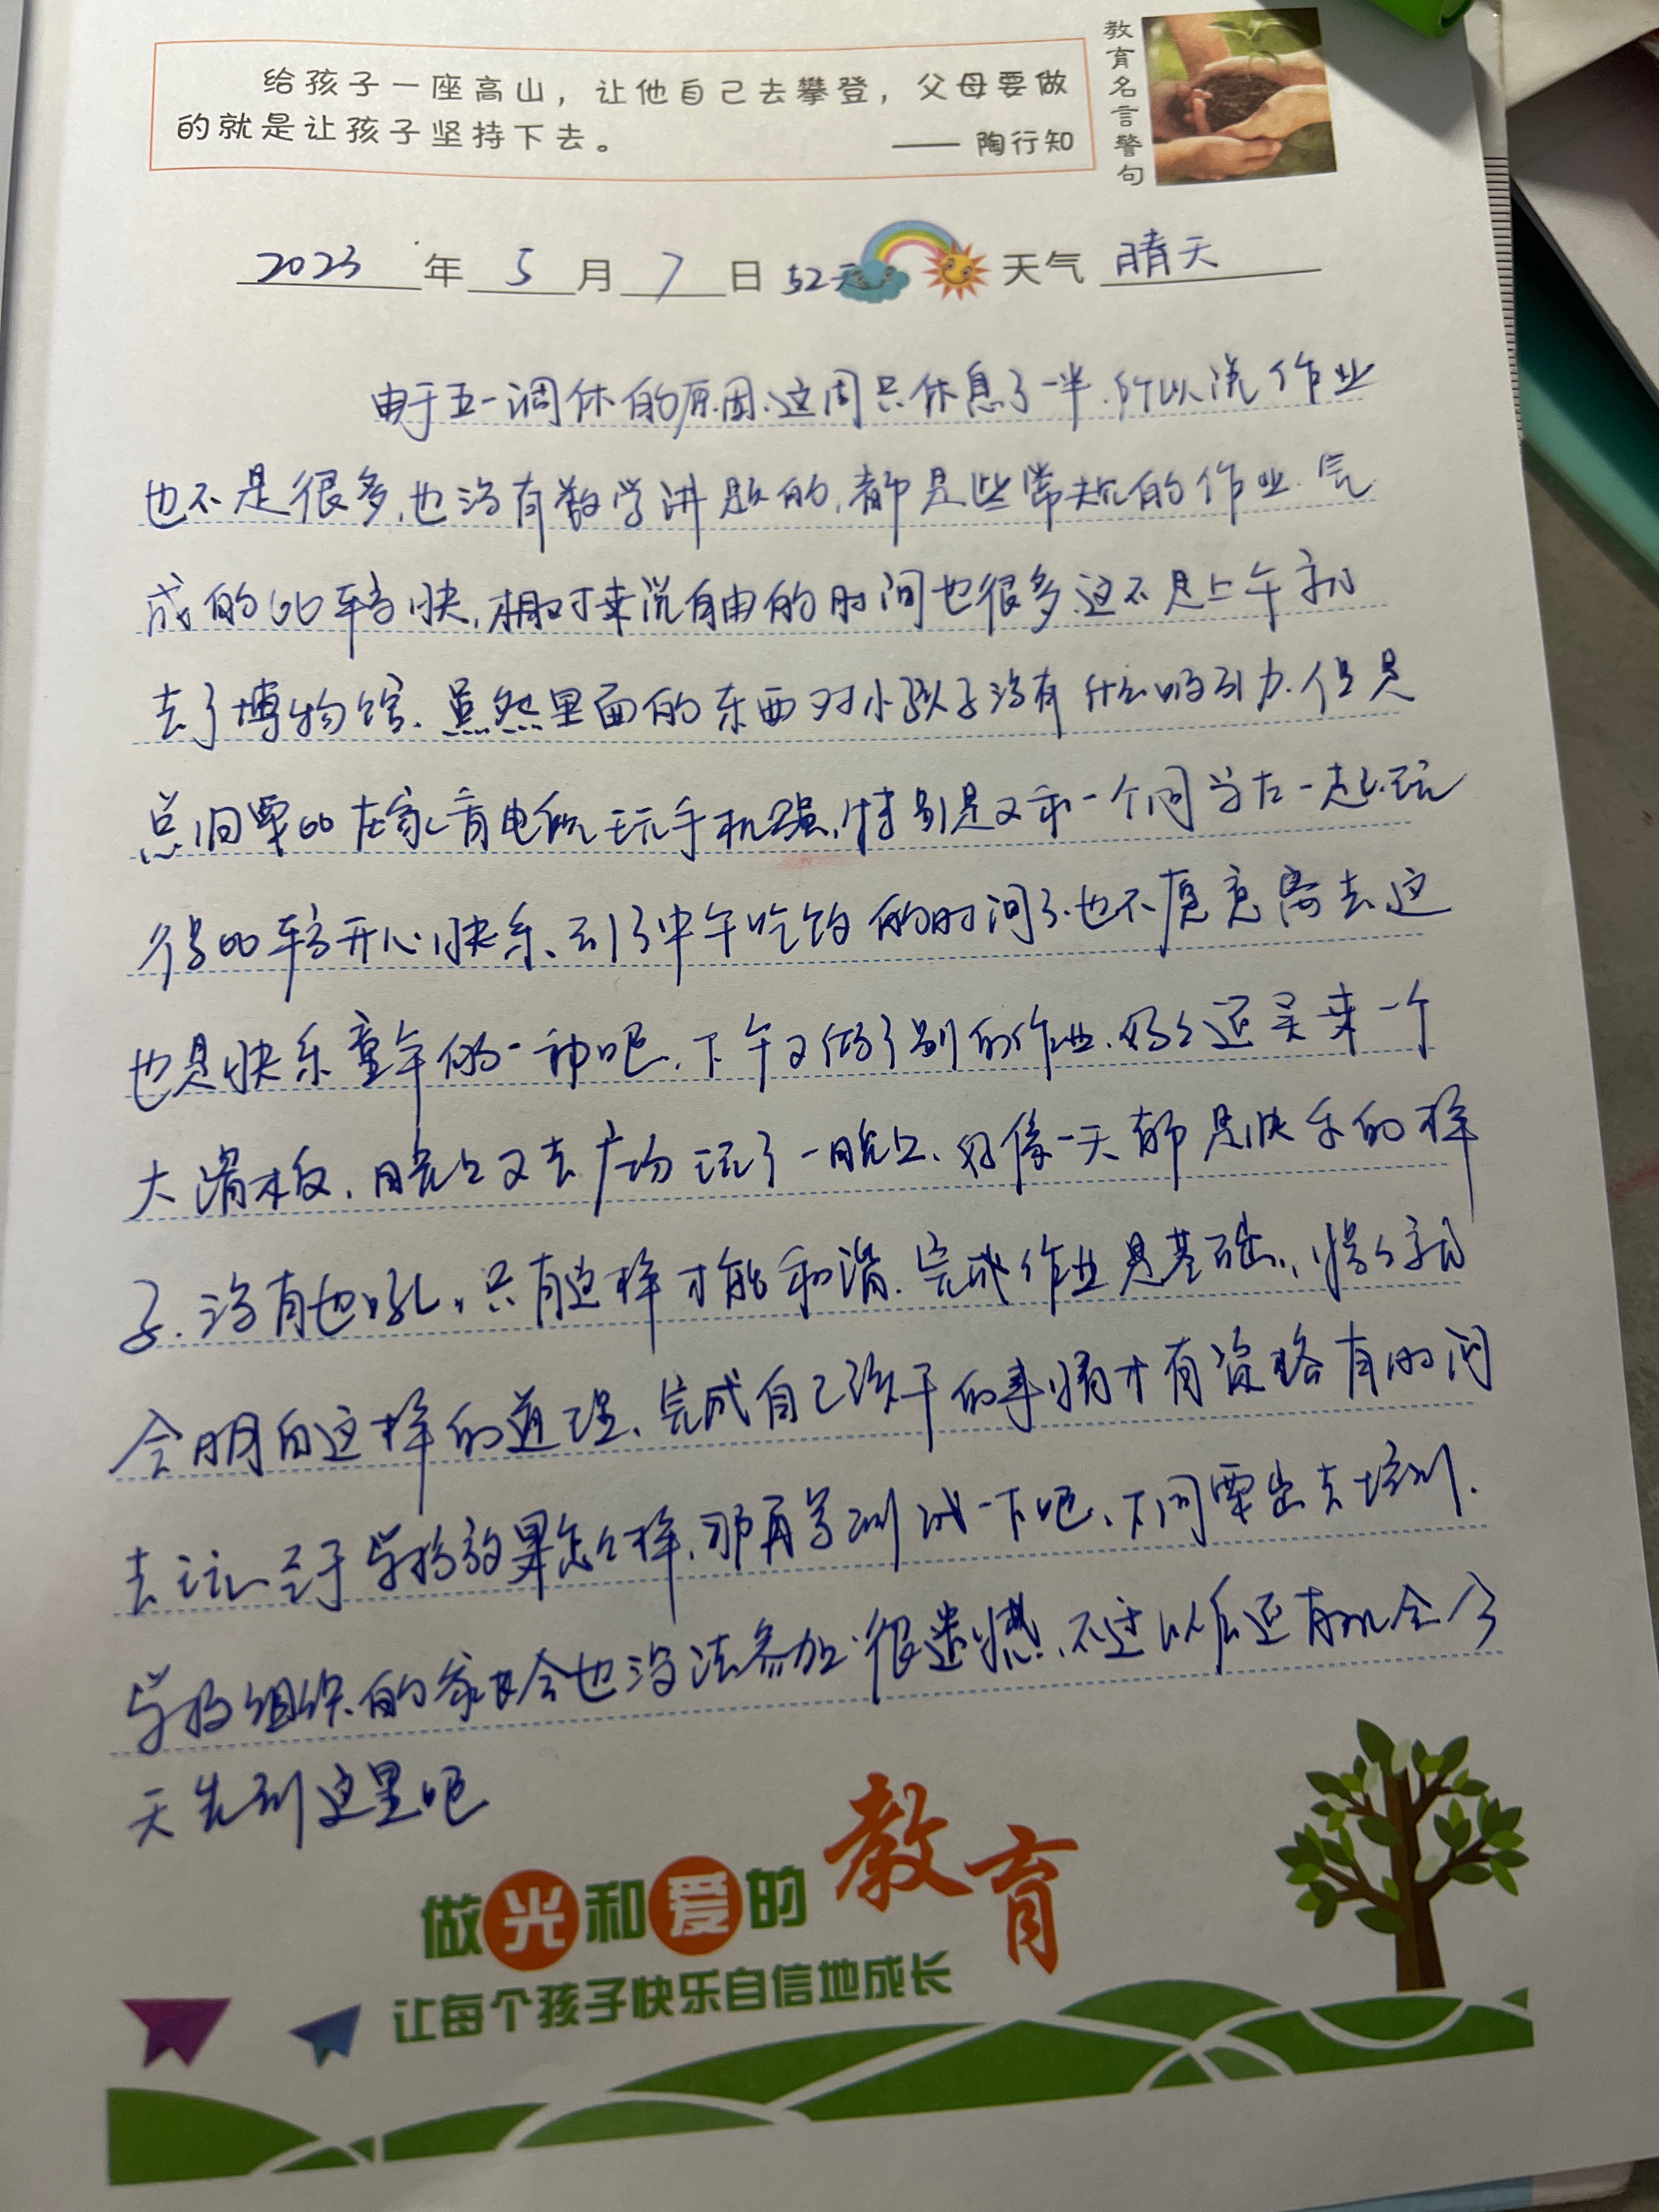 给孩子一座高山，让他自己去攀登，父母要做
的就是让孩子坚持下去。
—— 陶行知
教育名言警句
2023年5月7日 52天 天气 晴天
由于五一调休的原因、这周只休息了一半.所以说作业
也不是很多.也没有数学讲题的.都是些常规的作业.完
成的比较快.相对来说自由的时间也很多.这不是上午就
去了博物馆.虽然里面的东西对小孩子没有什么吸引力.但是
总归要比在家看电视玩手机强.特别是又和一个同学在一起玩
得比较开心快乐、到了中午吃饭的时间了.也不愿意离去这
也是快乐童年的一种吧.下午又做了别的作业.妈妈还买来一个
大滑板.晚上又去广场玩了一晚上.好像一天都是快乐的样
子.没有也吼.只有这样才能和谐.完成作业是基础.慢慢就
会明白这样的道理、完成自己该干的事情才有资格有时间
去玩.至于学习效果怎么样.那再等测试一下吧、下周要出去培训.
学校组织的家长会也没法参加.很遗憾.不过以后还有机会今
天先到这里吧
做光和爱的教育
让每个孩子快乐自信地成长